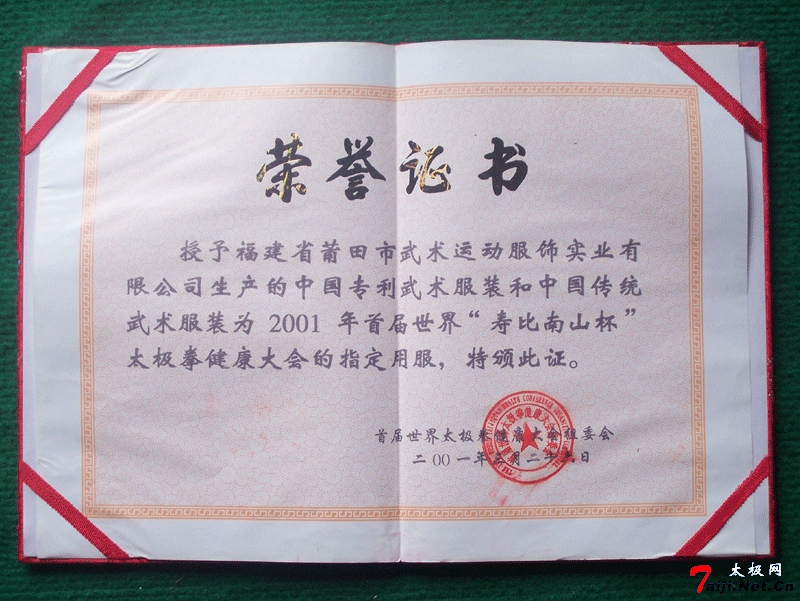 荣誉证书
授予福建省莆田市武术运动服饰实业有
限公司生产的中国专利武术服装和中国传统
武术服装为 2001 年首届世界“寿比南山杯”
太极拳健康大会的指定用服，特颁此证。
首届世界太极拳健康大会组委会
二00一年三月二十六日
太极网
7aiji.Net.Cn